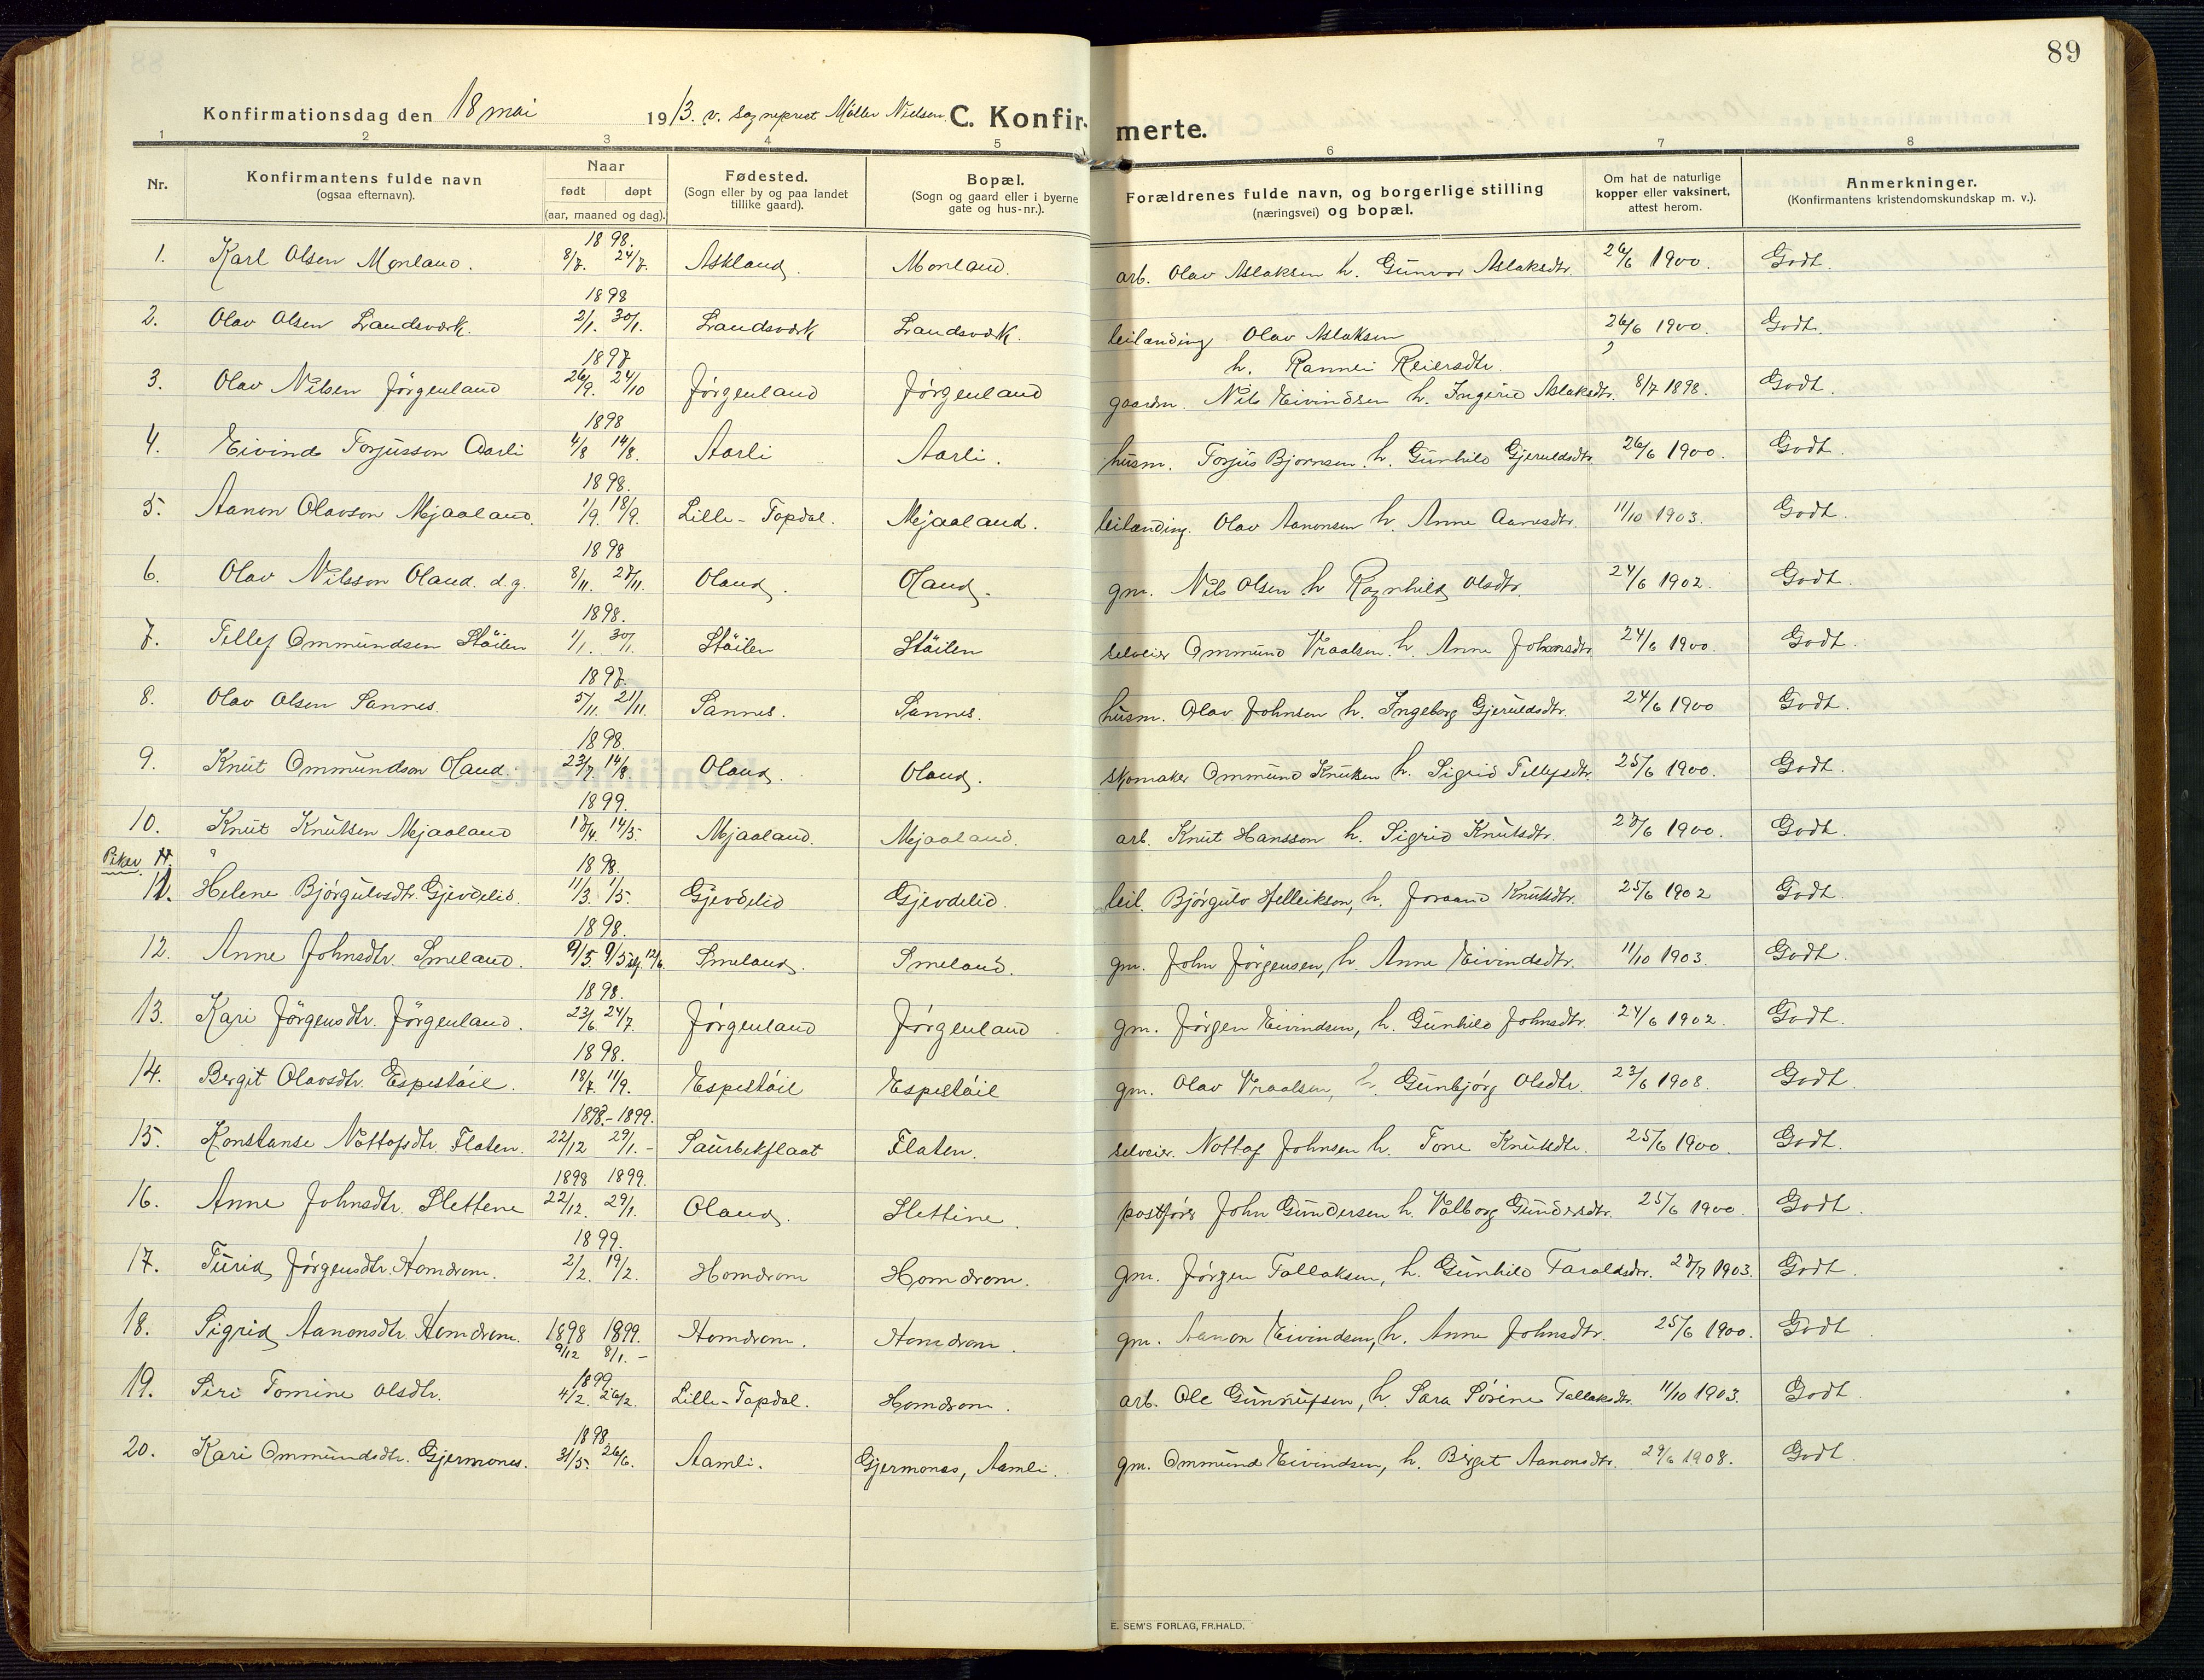 89
Konfirmationsdag den 18 mai 1913. v. sogneprest Möller Nielsen. C. Konfirmerte.
1 2 3 4 5 6 7 8
Nr. Konfirmantens fulde navn (ogsaa efternavn). Naar født døpt (aar, maaned og dag). Fødested. (Sogn eller by og paa landet tillike gaard). Bopæl. (Sogn og gaard eller i byerne gate og hus-nr.). Forældrenes fulde navn, og borgerlige stilling (næringsvei) og bopæl. Om hat de naturlige kopper eller vaksinert, attest herom. Anmerkninger. (Konfirmantens kristendomskundskap m. v.).
1. Karl Olsen Monland. 1898. 8/7. 24/7. Askland. Monland. arb. Olav Aslaksen h. Gunvor Aslaksdtr. 26/6 1900. Godt.
2. Olav Olsen Landsverk. 1898 2/1. 30/1. Landsverk Landsverk. leilænding Olav Aslaksen 26/6 1900. Godt.
h. Rannei Reiersdtr.
3. Olav Nilsen Jørgenland 1897 26/9. 24/10 Jørgenland Jørgenland gaardm. Nils Eivindsen h. Ingerid Aslaksdtr. 8/7 1898. Godt.
4. Eivind Torjusson Aarli 1898 4/8 14/8. Aarli Aarli. husm. Torjus Bjornsen. h. Gunhild Gjeruldsdtr 26/6 1900. Godt.
5. Aanon Olavson Mjaaland. 1898. 1/9. 18/9. Lille-Topdal. Mjaaland. leilænding. Olav Aanonsen h. Anne Aanesdtr. 11/10 1903. Godt.
6. Olav Nilsson Oland. d.y. 1898 8/11. 27/11. Oland. Oland. gm. Nils Olsen h Ragnhild Olsdtr. 24/6 1902. Godt.
7. Tellef Ommundsen Stöilen 1898. 1/1. 30/1. Stöilen Stöilen selveier Ommund Vraalsen. h. Anne Johansdtr 24/6 1900. Godt.
8. Olav Olsen Sannes. 1897. 5/11. 21/11. Sannes. Sannes. husm. Olav Johnsen h. Ingeborg Gjeruldsdtr. 24/6 1900 Godt.
9. Knut Ommundson Oland. 1898. 23/7. 14/8. Oland. Oland. skomaker Ommund Knutsen h. Sigrid Tellefsdtr 25/6 1900. Godt.
10. Knut Knutsen Mjaaland 1899. 17/4. 14/5. Mjaaland. Mjaaland. arb. Knut Hansson h. Sigrid Knutsdtr. 27/6 1900. Godt.
Piker
11. Helene Bjørgulvsdtr. Gjevdelid. 1898. 11/3. 1/5. Gjevdelid Gjevdelid. leil. Bjørgulv Helleiksen, h. Joraand Knutsdtr. 25/6 1902 Godt.
12. Anne Johnsdtr. Smeland. 1898. 9/5. 9/5 12/6. Smeland. Smeland. gm. John Jörgensen, h. Anne Eivindsdtr. 11/10 1903. Godt.
13. Kari Jörgensdtr. Jörgenland. 1898. 23/6. 24/7. Jørgenland Jørgenland gm. Jørgen Eivindsen, h. Gunhild Johnsdtr. 24/6 1902. Godt.
14. Bergit Olavsdtr. Espestöil. 1898. 18/7. 11/9. Espestöil Espestöil gm. Olav Vraalsen, h. Gunbjörg Olsdtr. 23/6 1908. Godt.
15. Konstanse Nottofsdtr. Flaten. 1898.-1899. 22/12 29/1.- Saurbekflaat Flaten. selveier. Nottof Johnsen h. Tone Knutsdtr. 25/6 1900. Godt.
16. Anne Johnsdtr. Slettene 1898 1899. 22/12. 29/1. Oland. Slettine. postfører John Gundersen h. Valborg Gundersdtr. 25/6 1900. Godt.
17. Turid Jørgensdtr. Homdrom. 1899. 2/2. 19/2. Homdrom Homdrom. gm. Jörgen Tallaksen, h. Gunhild Taraldsdtr. 27/7 1903. Godt.
18. Sigrid Aanonsdtr. Homdrom. 1898 1899. 9/12 8/1.- Homdrom. Homdrom. gm. Aanon Eivindsen, h. Anne Johnsdtr. 25/6 1900. Godt
19. Siri Tomine Olsdtr. 1899 4/2. 26/2. Lille-Topdal. Homdrom. arb. Ole Gunnufsen, h. Sara Sörine Tallaksdtr. 11/10 1903. Godt.
20. Kari Ommundsdtr. Gjermones. 1898 31/5. 26/6. Aamli. Gjermones, Aamli. gm. Ommund Eivindsen, h. Birgit Aanonsdtr. 29/6 1908. Godt.
E. SEM'S FORLAG, FR.HALD.